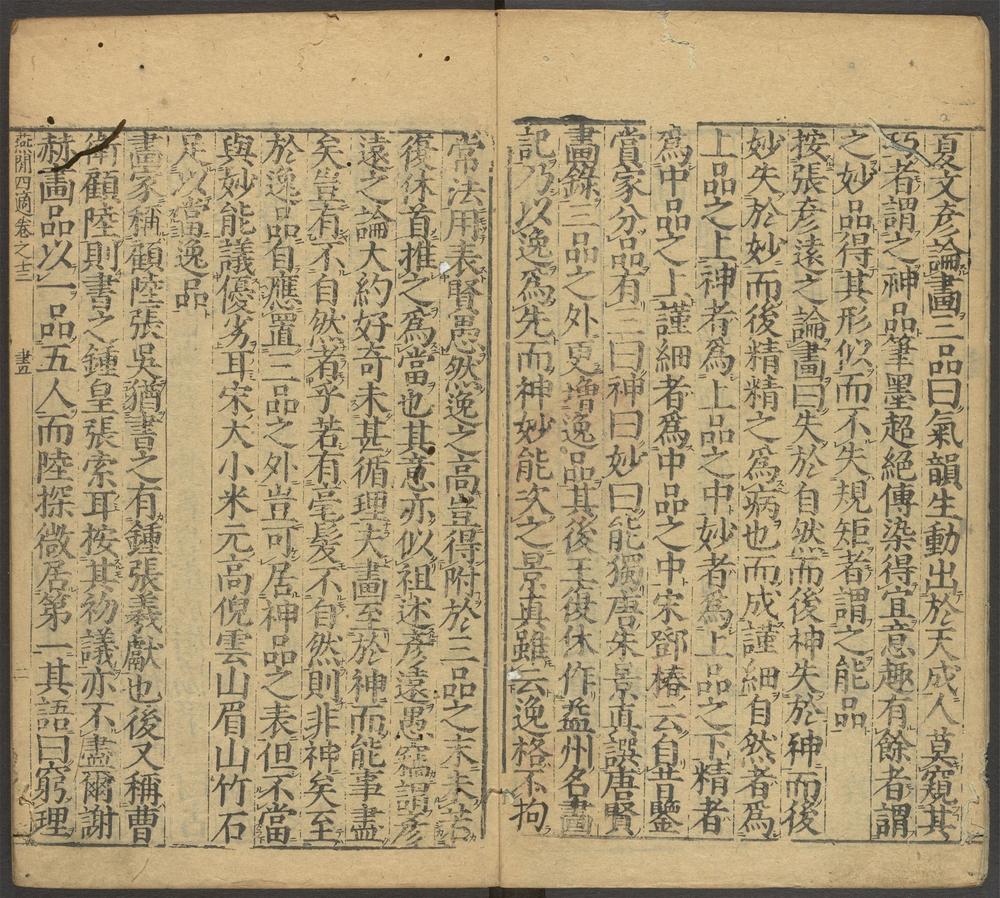 夏文彦論畫三品曰氣韻生動出於天成人莫窺其
巧者謂之神品筆墨超絕傳染得宜意趣有餘者謂
之妙品得其形似而不失規矩者謂之能品
按張彦遠之論畫曰失於自然而後神失於神而後
妙失於妙而後精精之爲病也而成謹細自然者爲
上品之上神者爲上品之中妙者爲上品之下精者
爲中品之上謹細者爲中品之中宋鄧椿云自昔鑒
賞家分品有三曰神曰妙曰能獨唐朱景真譔唐賢
畫錄三品之外更增逸品其後王復休作益州名畫
記乃以逸爲先而神妙能次之景真雖云逸格不拘
常法用表賢愚然逸之高豈得附於三品之末未若
復休首推之爲當也其意亦似祖述彦遠愚竊謂彦
遠之論大約好奇未甚循理夫畫至於神而能事盡
矣豈有不自然者乎若有毫髮不自然則非神矣至
於逸品自應置三品之外豈可居神品之表但不當
與妙能議優劣耳宋大小米元高倪雲山眉山竹石
足以當逸品
畫家稱顧陸張吳猶書之有鍾張羲獻也後又稱曹
衛顧陸則書之鍾皇張索耳按其初議亦不盡爾謝
赫畫品以一品五人而陸探微居第一其語曰窮理
燕閒四適卷之十二 畫五 二